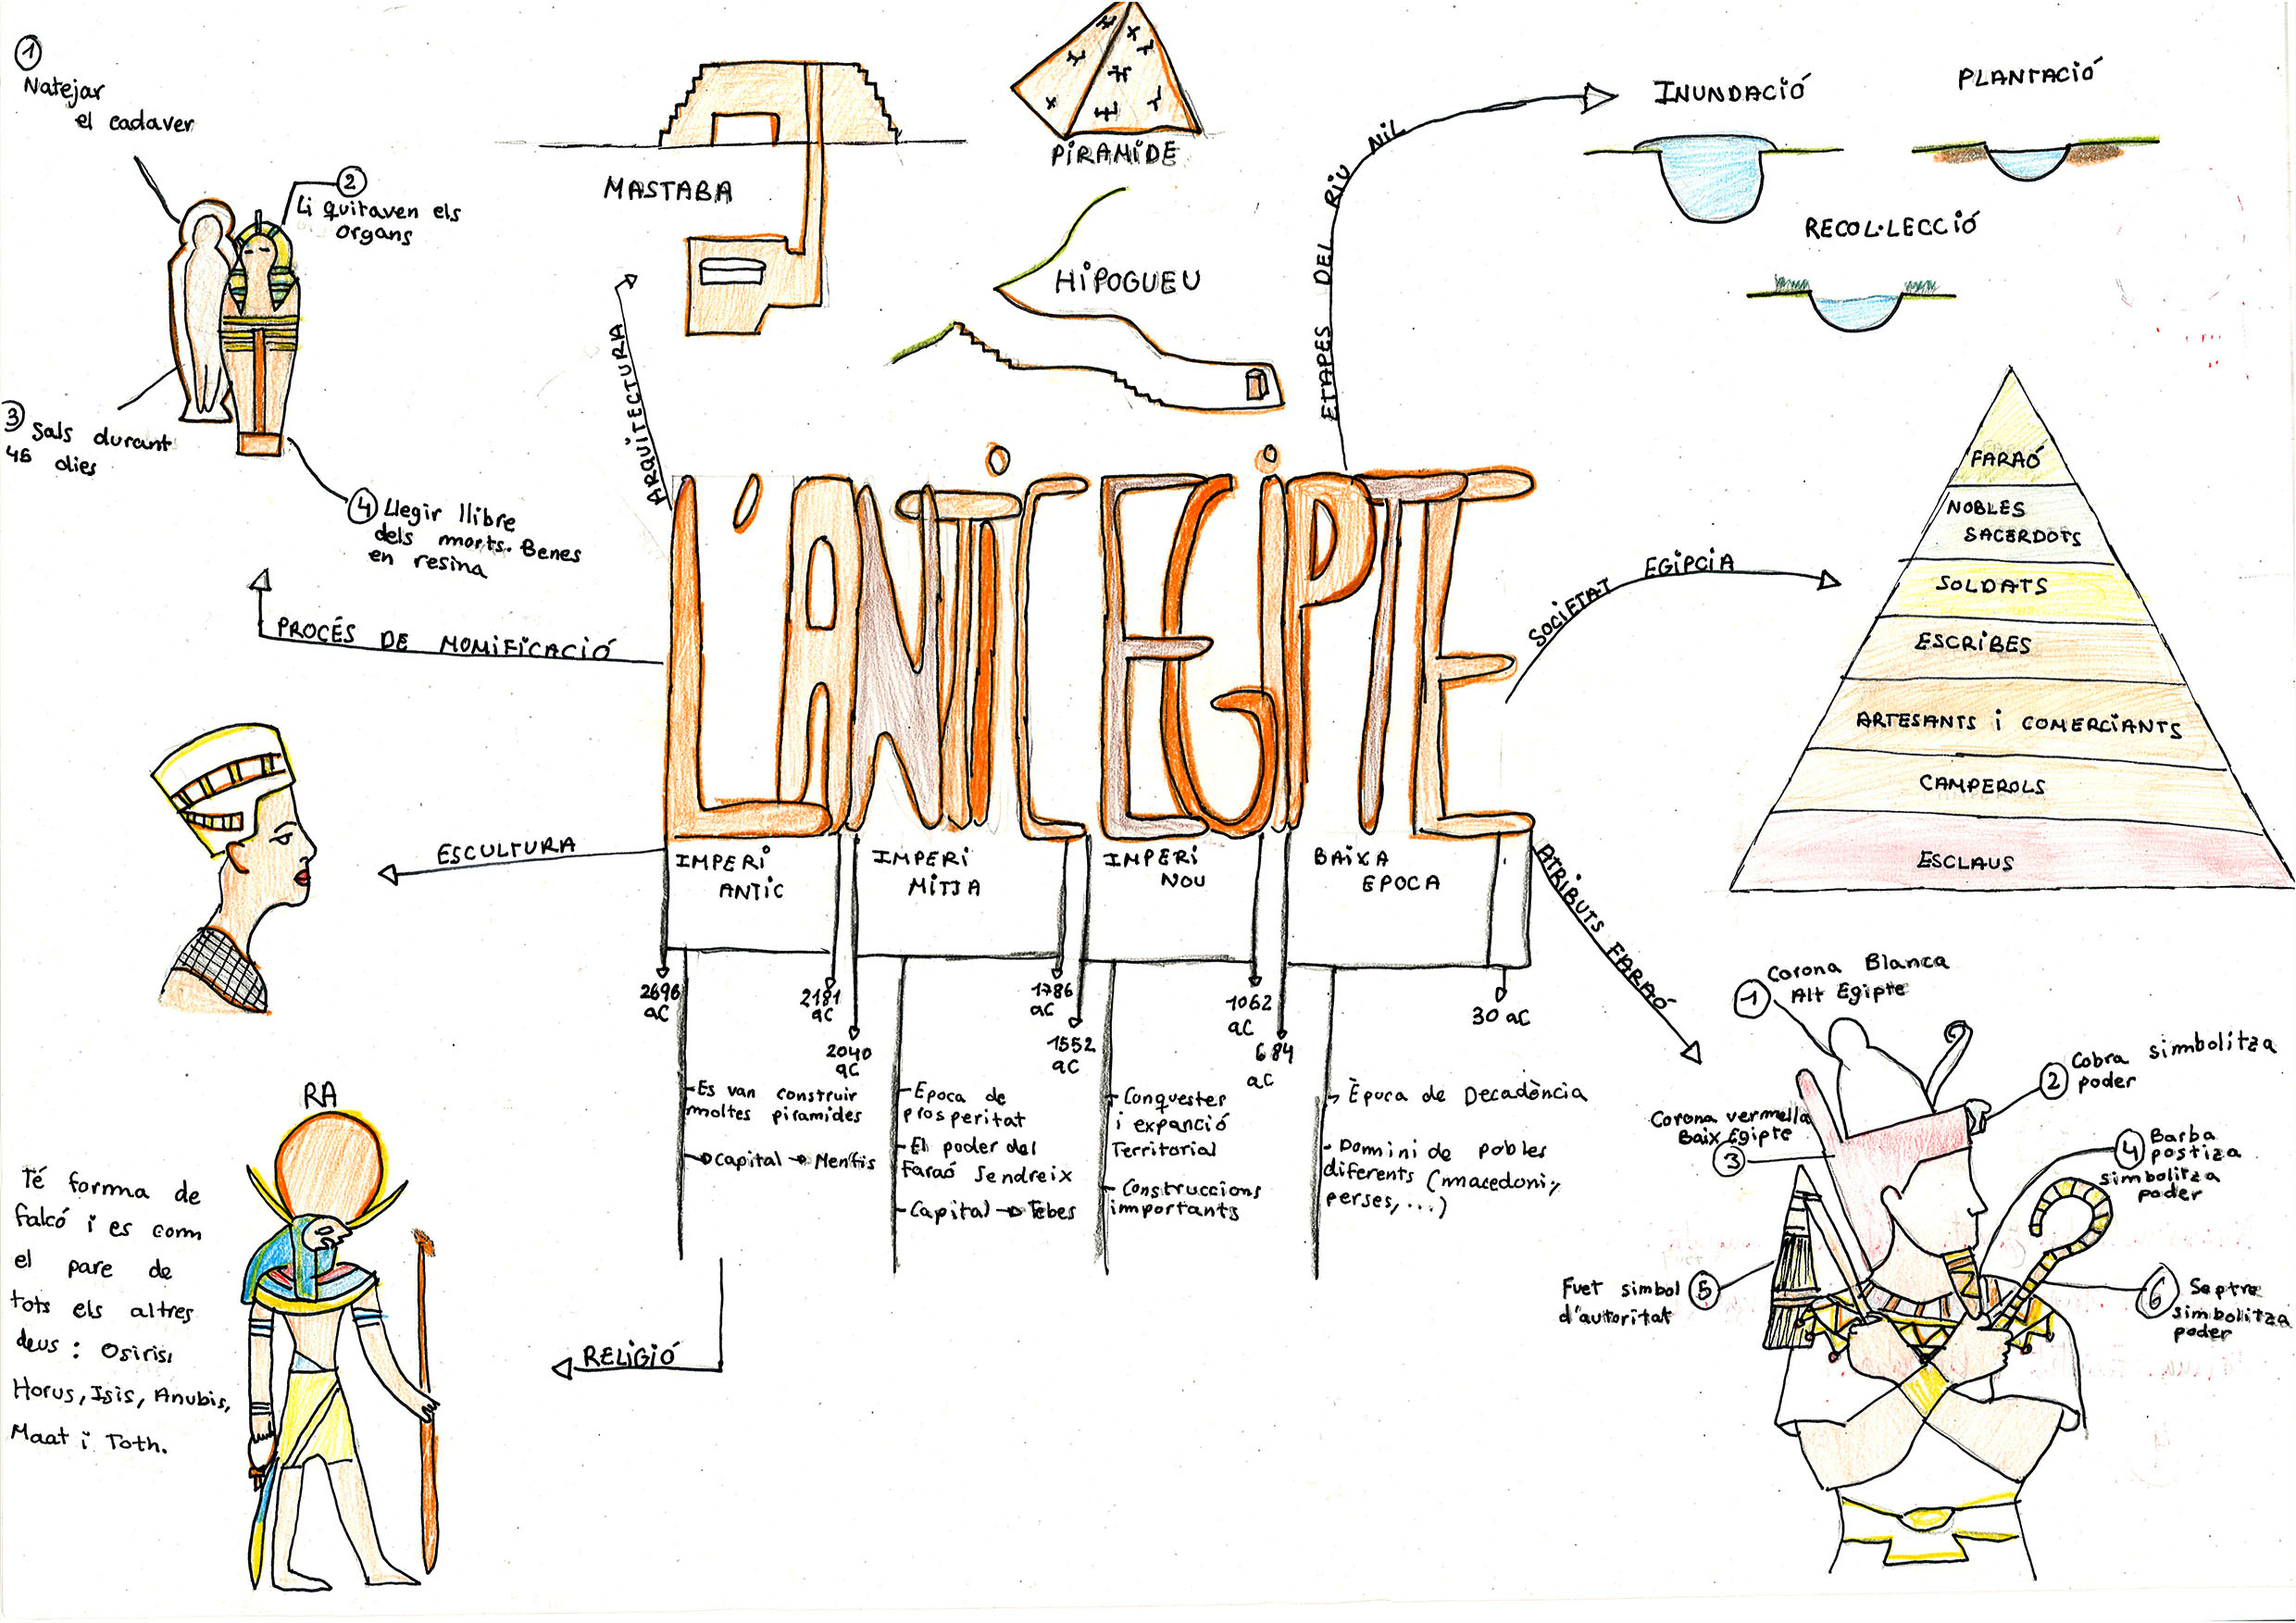 1
Natejar
el cadaver
2
Li quitaven els
organs
3 Sals durant
45 dies
4 Llegir llibre
dels morts. Benes
en resina
PROCÉS DE MOMIFICACIÓ
MASTABA
PIRAMIDE
HIPOGUEU
ARQUITECTURA
ETAPES DEL RIU NIL
INUNDACIÓ
PLANTACIÓ
RECOL·LECCIÓ
L'ANTIC EGIPTE
SOCIETAT EGIPCIA
FARAÓ
NOBLES
SACERDOTS
SOLDATS
ESCRIBES
ARTESANTS i COMERCIANTS
CAMPEROLS
ESCLAUS
ESCULTURA
IMPERI
ANTIC
IMPERI
MITJA
IMPERI
NOU
BAIXA
EPOCA
2696
aC
2181
aC
2040
aC
1786
aC
1552
aC
1062
aC
684
aC
30 aC
-Es van construir
moltes piramides
Capital → Menfis
-Epoca de
prosperitat
-El poder del
faraó s'endreix
-Capital → Tebes
- Conquestes
i expanció
Territorial
- Construccions
importants
Època de Decadència
- Domini de pobles
diferents (macedoni,
perses,...)
RELIGIÓ
RA
Té forma de
falcó i es com
el pare de
tots els altres
deus: Osiris,
Horus, Isis, Anubis,
Maat i Toth.
ATRIBUTS FARAÓ
1 Corona Blanca
Alt Egipte
2 Cobra simbolitza
poder
Corona vermella
Baix Egipte
3
4 Barba
postiza
simbolitza
poder
Fuet simbol 5
d'autoritat
6 Septre
simbolitza
poder